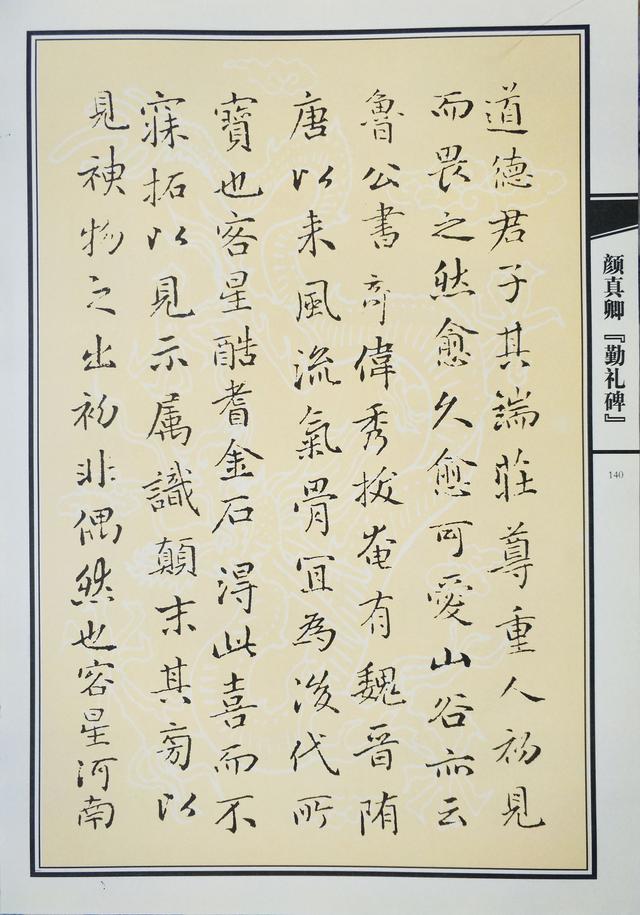 道德君子其端莊尊重人初見
而畏之然愈久愈可愛山谷亦云
魯公書奇偉秀拔奄有魏晉隋
唐以来風流氣骨宜為後代所
寶也容星酷耆金石得此喜而不
寐拓以見示属識顛末其旁以
見神物之出初非偶然也容星河南
颜真卿『勤礼碑』
140